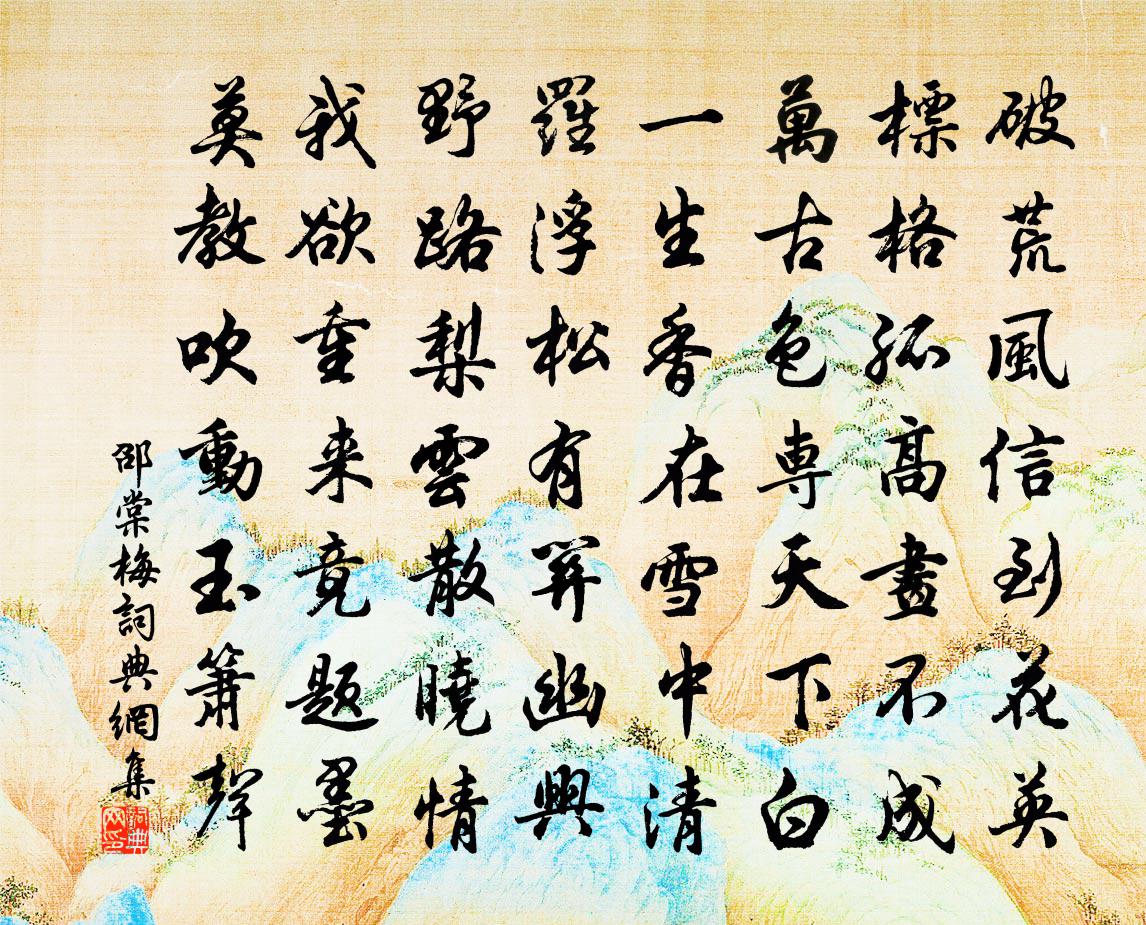 破荒風信到花英
標格孤高畫不成
萬古色専天下白
一生香在雪中清
羅浮松有筭幽興
野路梨雲散曉情
我欲重来竟题墨
莫教吹動玉箫聲
邵棠梅詞典網集
詞典